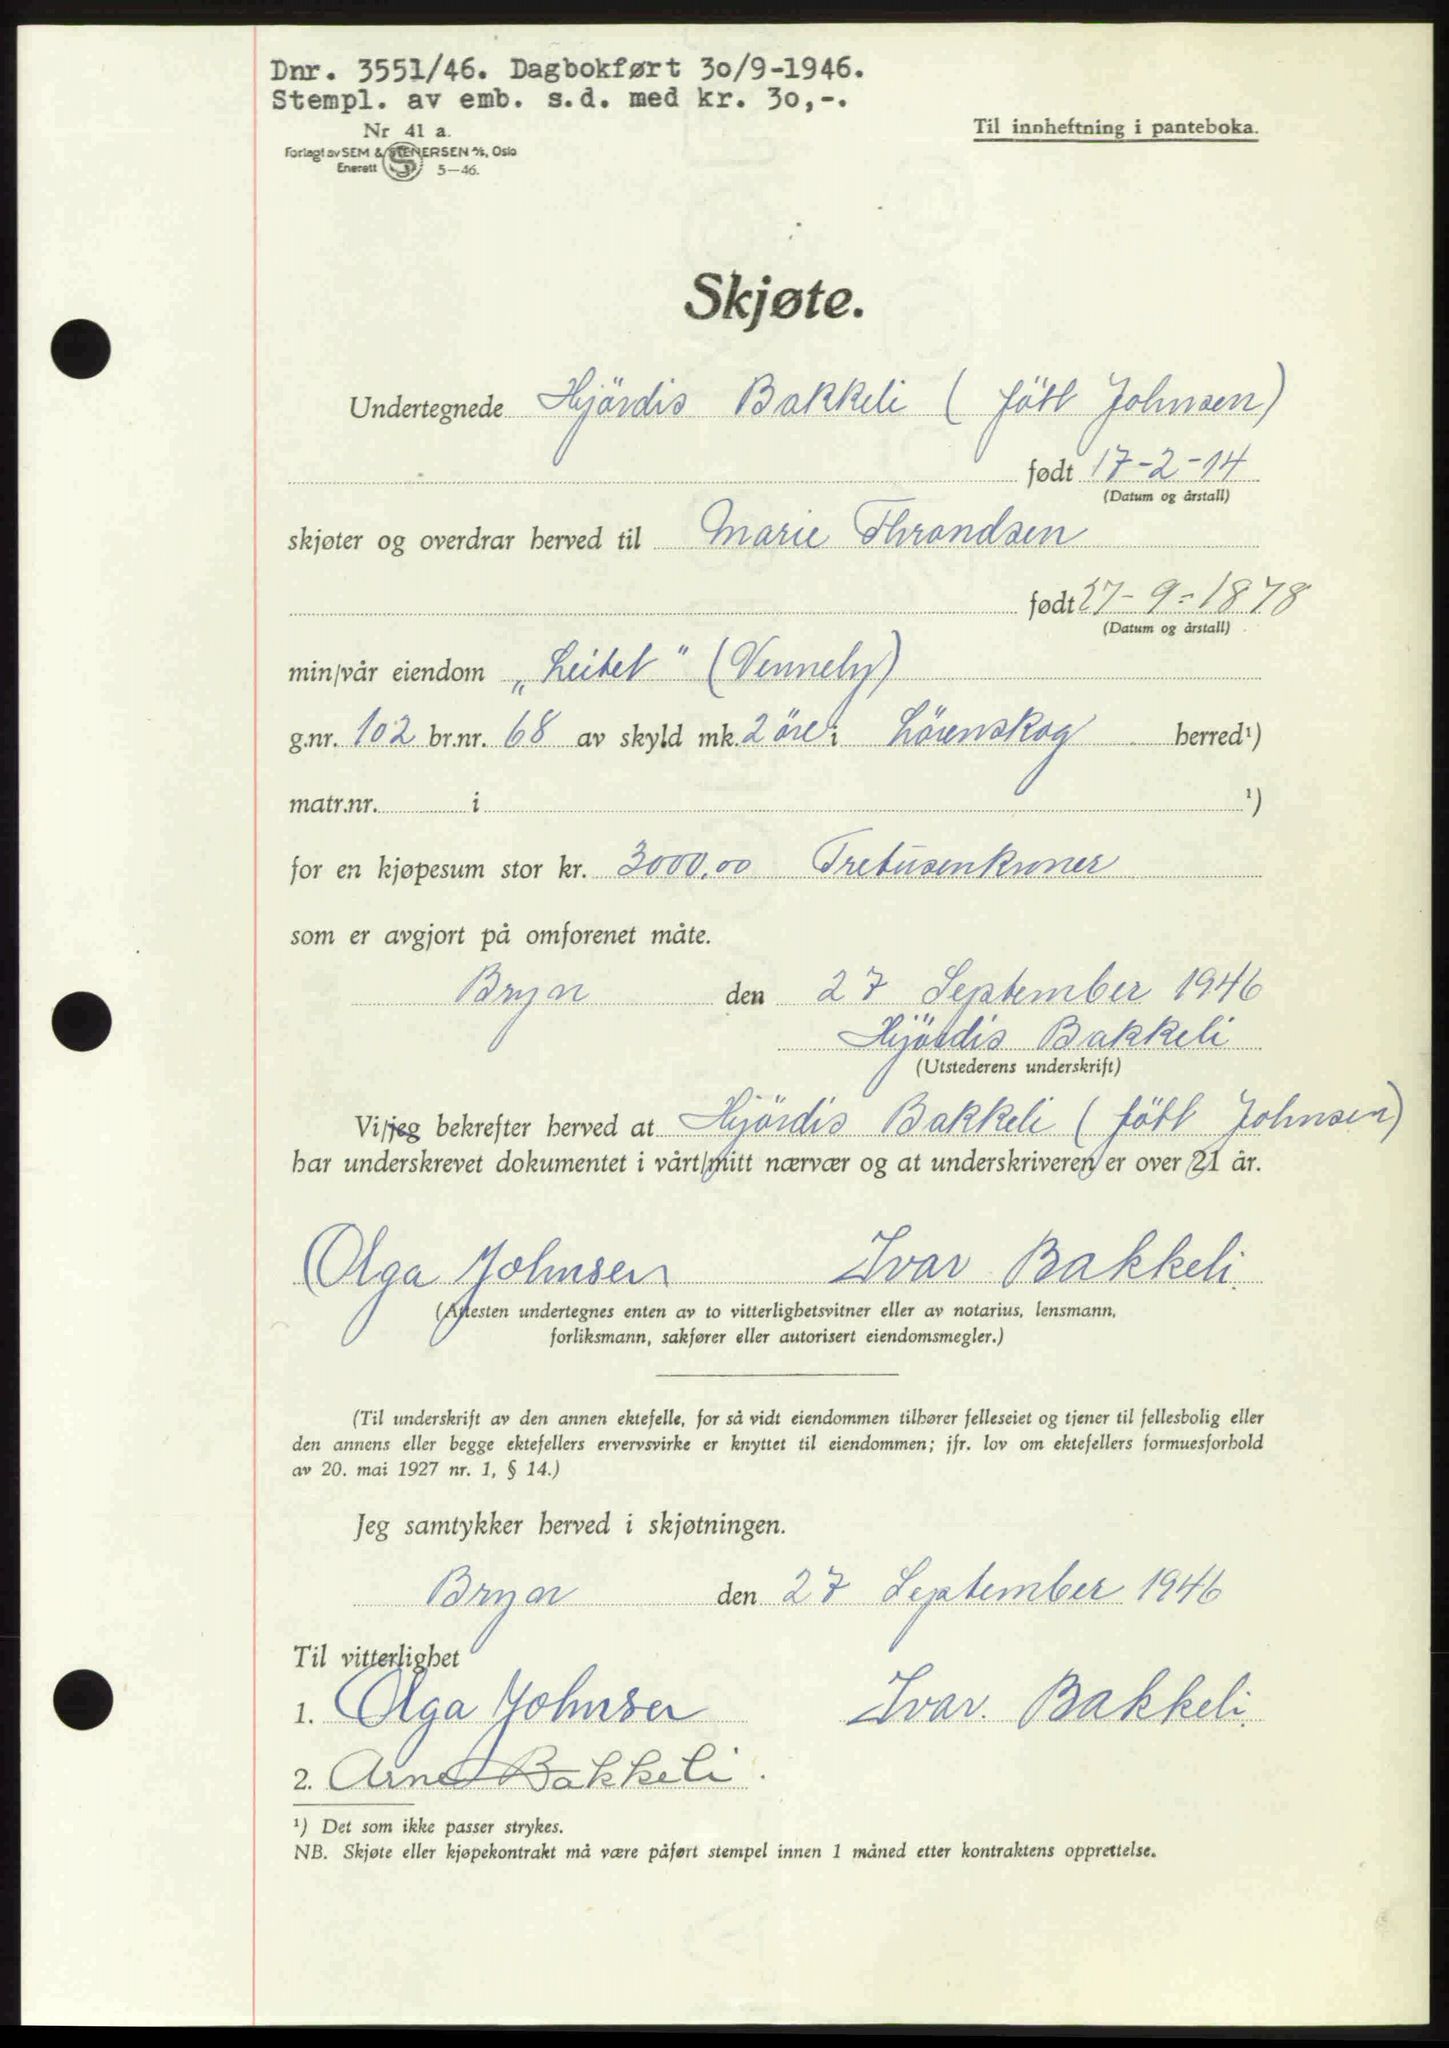 Dnr. 3551/46. Dagbokført 30/9-1946.
Stempl. av emb. s.d. med kr. 30,-.
Nr 41 a.
Forlagt av SEM & STENERSEN A/S, Oslo
Enerett 5—46.
Til innheftning i panteboka.
Skjøte.
Undertegnede Hjördis Bakkeli (födt Johnsen)
født 17-2-14
(Datum og årstall)
skjøter og overdrar herved til Marie Throndsen
født 27-9-1878
(Datum og årstall)
min/vår eiendom „Leitet" (Venneby)
g.nr. 102 br.nr. 68 av skyld mk. 2 öre i Lörenskog herred¹)
matr.nr. i ¹)
for en kjøpesum stor kr. 3000,00 Tretusenkroner
som er avgjort på omforenet måte.
Bryn den 27 September 1946
Hjördis Bakkeli
(Utstederens underskrift)
Vi/jeg bekrefter herved at Hjördis Bakkeli (födt Johnsen)
har underskrevet dokumentet i vårt/mitt nærvær og at underskriveren er over 21 år.
Olga Johnsen Ivar Bakkeli
(Attesten undertegnes enten av to vitterlighetsvitner eller av notarius, lensmann,
forliksmann, sakfører eller autorisert eiendomsmegler.)
(Til underskrift av den annen ektefelle, for så vidt eiendommen tilhører felleseiet og tjener til fellesbolig eller
den annens eller begge ektefellers ervervsvirke er knyttet til eiendommen; jfr. lov om ektefellers formuesforhold
av 20. mai 1927 nr. 1, § 14.)
Jeg samtykker herved i skjøtningen.
Bryn den 27 September 1946
Til vitterlighet
1. Olga Johnsen Ivar. Bakkeli
2. Arne Bakkeli.
¹) Det som ikke passer strykes.
NB. Skjøte eller kjøpekontrakt må være påført stempel innen 1 måned etter kontraktens opprettelse.